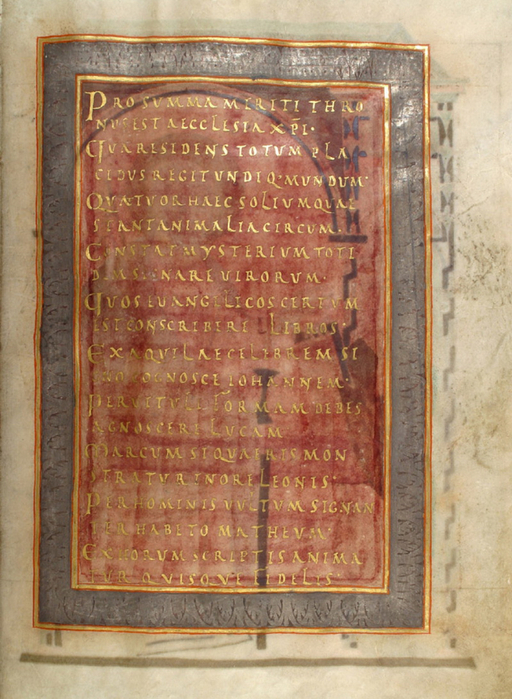 PRO SUMMA MERITI THRO
NUS EST AECCLESIA XPI·
QUA RESIDENS TOTUM PLA
CIDUS REGIT UNDIQ·MUNDUM·
QUATUOR HAEC SOLIUM QUAE
STANT ANIMALIA CIRCUM·
CONSTAT MYSTERIUM TOTI
NARE VIRORUM·
QUOS EUANGELICOS CERTUM
EST CONSCRIBERE LIBROS·
EX AQUILAE CELEBREM SI
GNO COGNOSCE IOHANNEM·
PER VITULI FORMAM DEBES
AGNOSCERE LUCAM
MARCUM SI QUAERIS MON
STRATUR IN ORE LEONIS·
PER HOMINIS VULTUM SIGNAN
TER HABETO MATHEUM·
EX HORUM SCRIPTIS ANIMA
TUR QUISQUE FIDELIS·